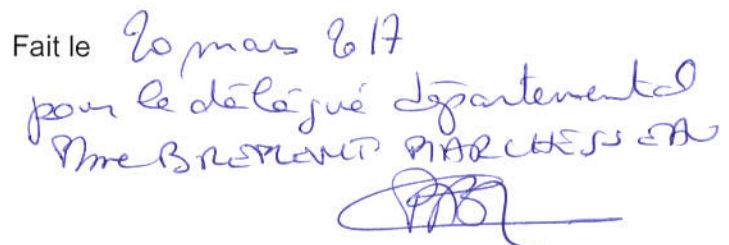 Fait le 20 mars 2017
pour le délégué départemental
Mme BREMONT MARCHESSEAU